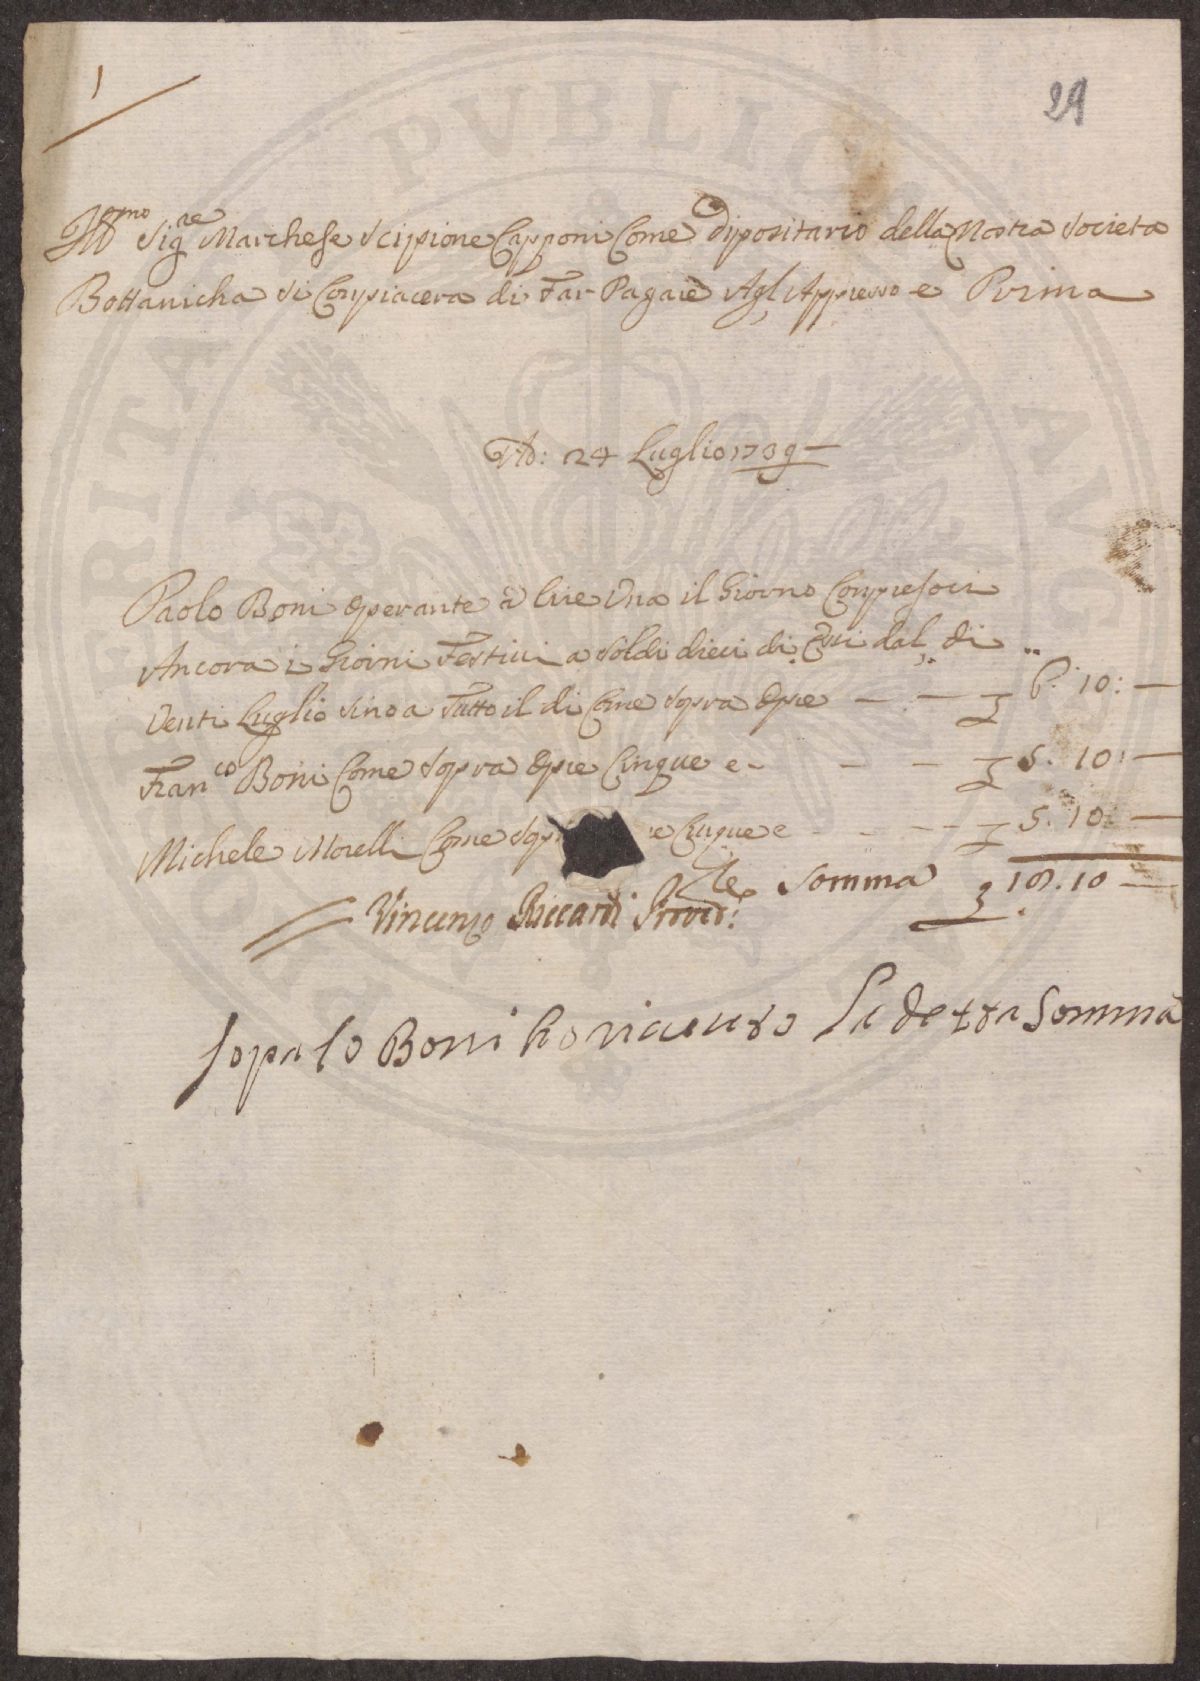 1
29
Ill.mo Sig.re Marchese Scipione Capponi Come Dipositario della Nostra Societa
Bottanicha si Conpiacera di Far Pagare Agl'Appresso e Prima
Ad: 24 Luglio 1739
Paolo Boni Operante a lire Una il Giorno Conpresoci
Ancora i Giorni Festiui a Soldi dieci di Essi dal di
Venti Luglio Sino a Tutto il di Come Sopra Opre — — 6. 10: —
Fran.co Boni Come Sopra Opre Cinque e — — — 5. 10: —
Michele Morelli Come Cinque e — — — 5. 10: —
Somma 10 —
Vincenzo Riccardi Proved:
Io palo Boni ho riceuuto La detta Somma
PVBLIC